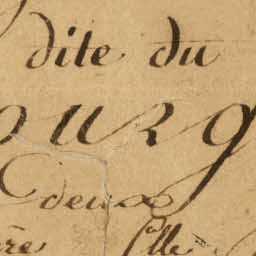 dite du
OURG
deux
ère fille